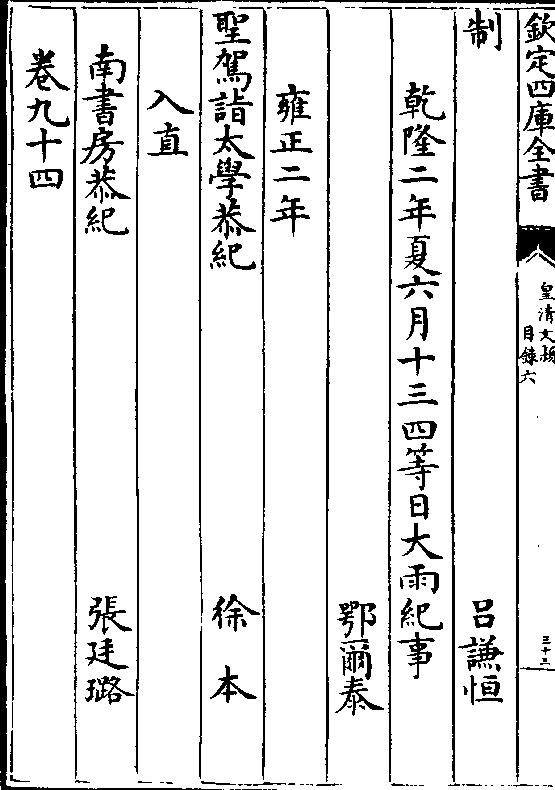 欽定四庫全書
皇清文穎
目錄六
三十三
制
呂謙恒
乾隆二年夏六月十三四等日大雨紀事
鄂爾泰
雍正二年
聖駕詣太學恭紀
徐本
入直
南書房恭紀
張廷璐
卷九十四